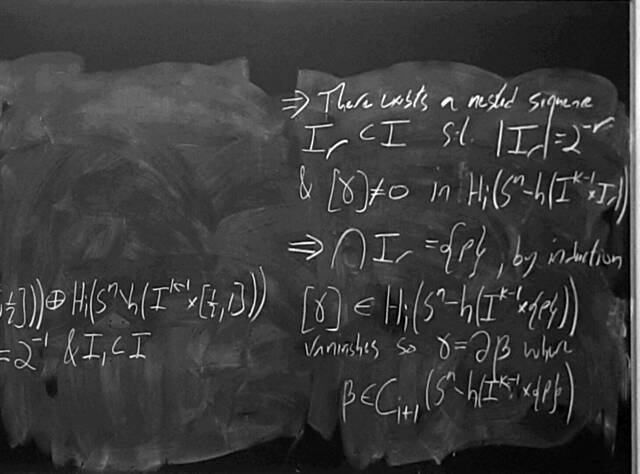 ½])) ⊕ Hᵢ(Sⁿ∖h(Iᵏ⁻¹×[½,1]))
=2⁻¹ & I₁⊂I
⇒ There exists a nested siquence
Iᵣ⊂I s.t. |Iᵣ|=2⁻ʳ
& [γ]≠0 in Hᵢ(Sⁿ-h(Iᵏ⁻¹×Iᵣ))
⇒ ⋂Iᵣ={p}, by induction
[γ] ∈ Hᵢ(Sⁿ-h(Iᵏ⁻¹×{p}))
vanishes so γ=∂β where
β∈Cᵢ₊₁(Sⁿ-h(Iᵏ⁻¹×{p})